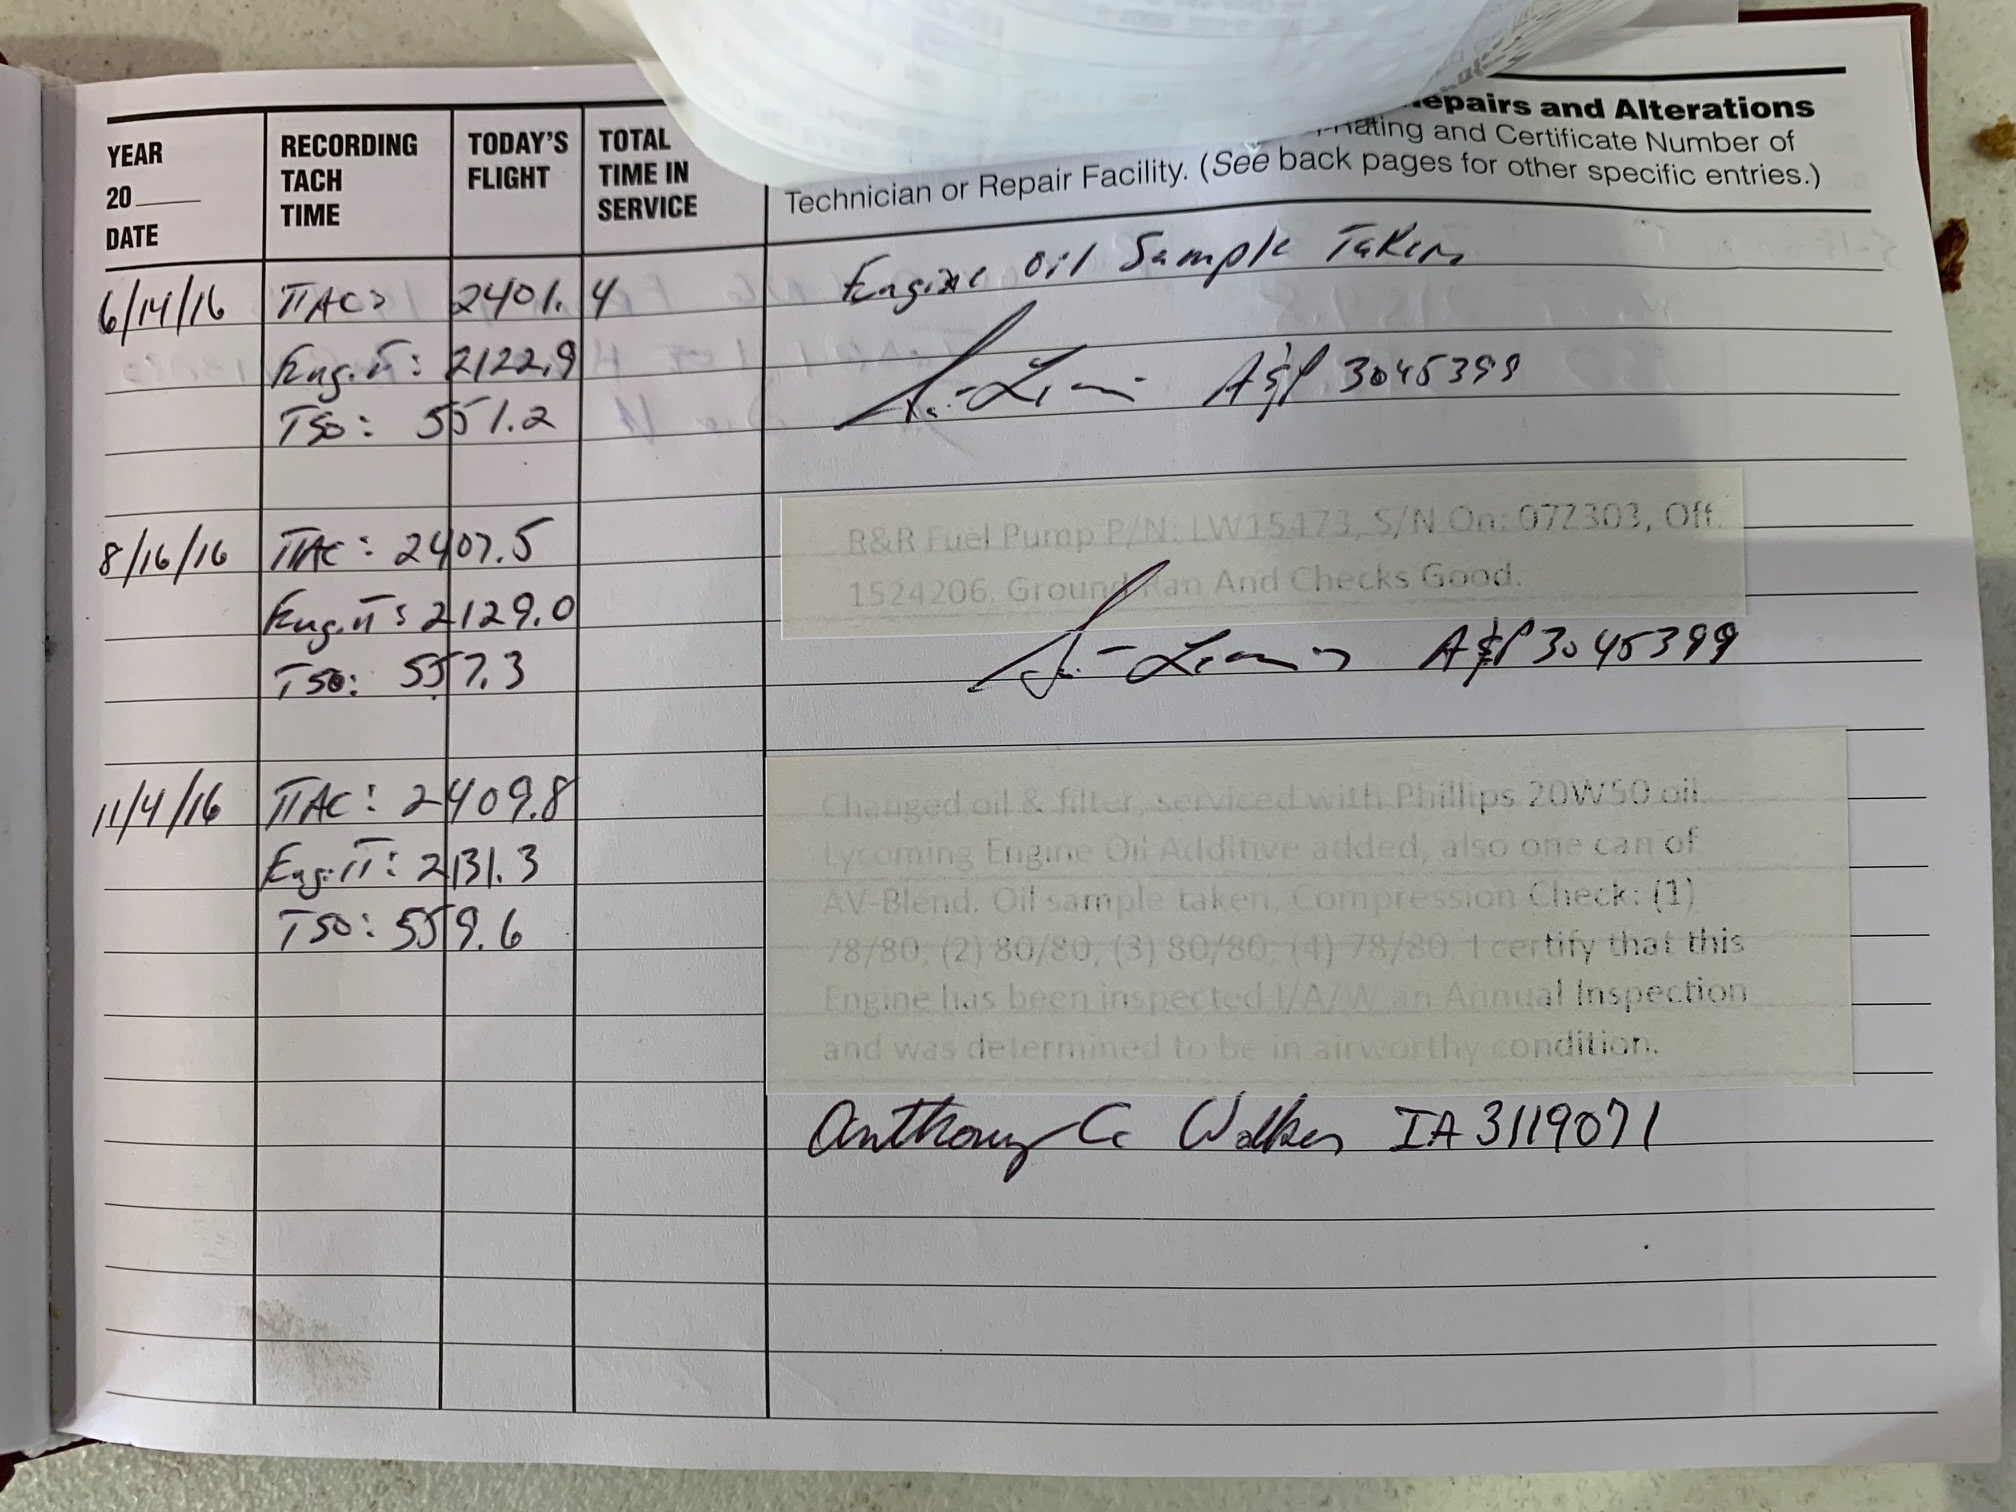 YEAR
20___
DATE
RECORDING
TACH
TIME
TODAY'S
FLIGHT
TOTAL
TIME IN
SERVICE
Repairs and Alterations
and Certificate Number of
Technician or Repair Facility. (See back pages for other specific entries.)
6/14/16 TTAC: 2401.4 Engine Oil Sample Taken
Eng. TT: 2122.9 A&P 3045399
TSO: 551.2
8/16/16 TTAC: 2407.5 R&R Fuel Pump P/N: LW15473, S/N On: 072303, Off:
Eng. TT: 2129.0 1524206. Ground Ran And Checks Good.
TSO: 557.3 A&P 3045399
11/4/16 TTAC: 2409.8 Changed oil & filter, serviced with Phillips 20W50 oil.
Eng. TT: 2131.3 Lycoming Engine Oil Additive added, also one can of
TSO: 559.6 AV-Blend. Oil sample taken, Compression Check: (1)
78/80, (2) 80/80, (3) 80/80, (4) 78/80. I certify that this
Engine has been inspected I/A/W an Annual Inspection
and was determined to be in airworthy condition.
Anthony C Walker IA 3119071